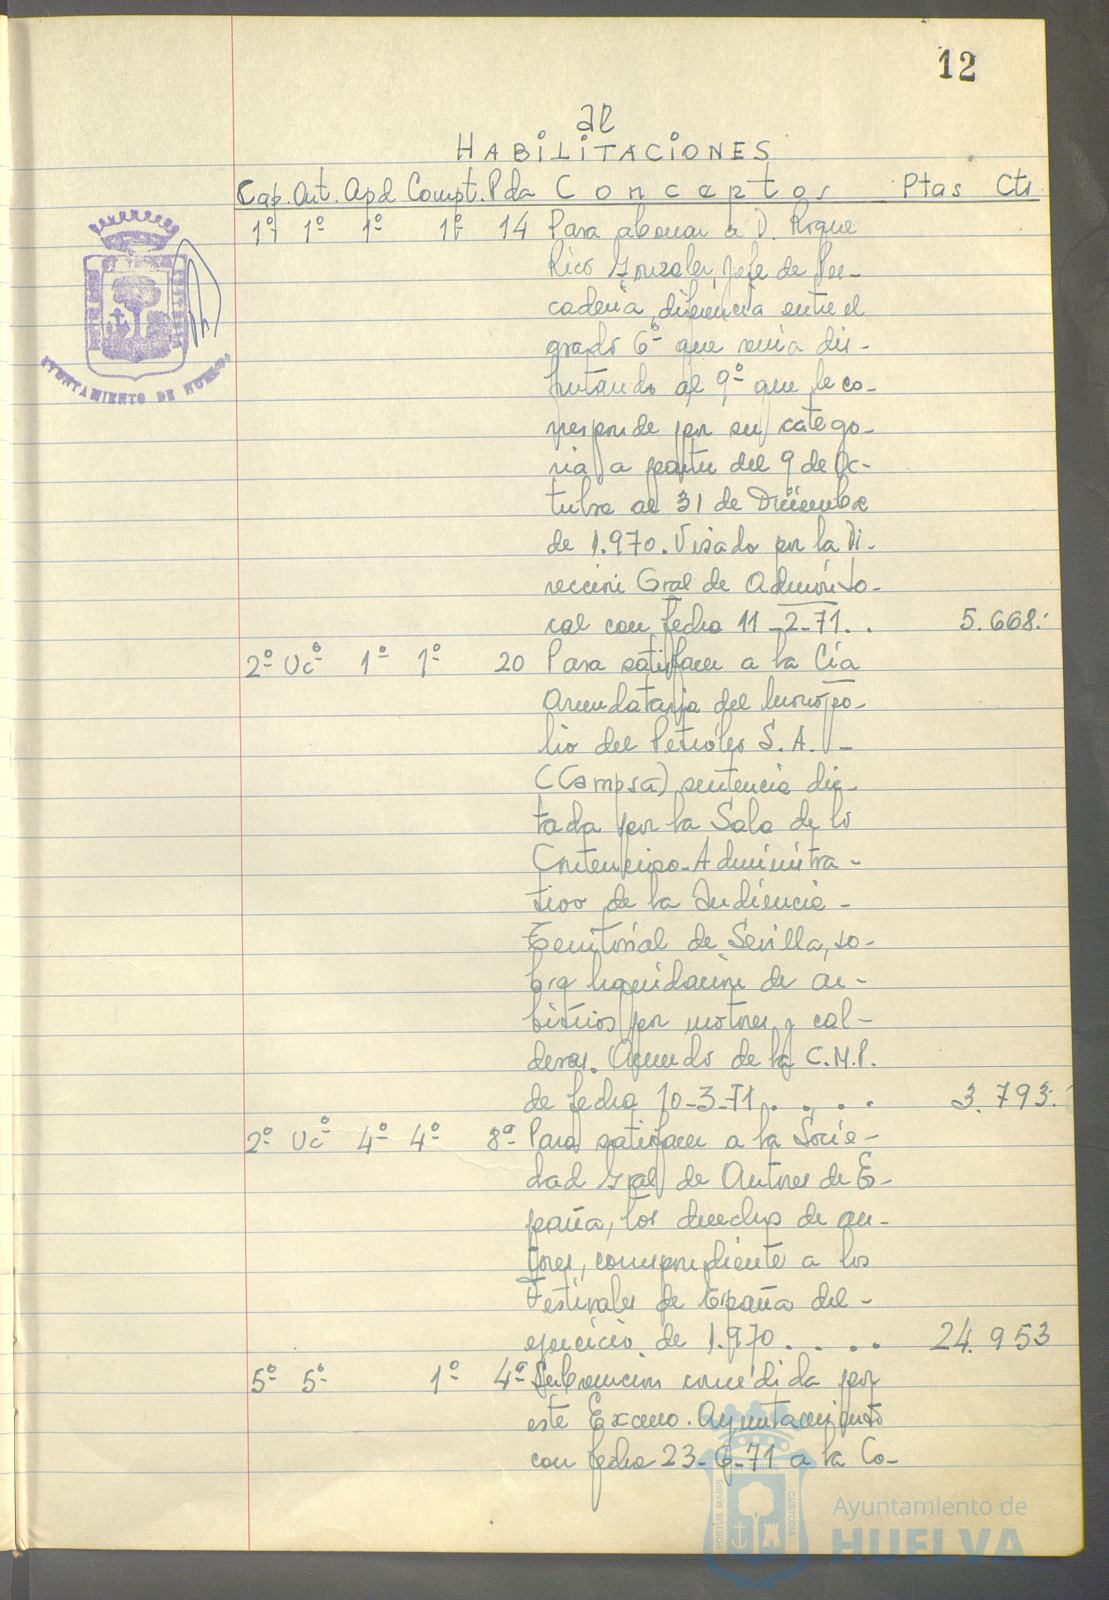 12
al
HABILITACIONES
Cap. Art. Apd. Compt. Pda Conceptos Ptas Cts.
1º 1º 1º 1º 14 Para abonar a D. Roque
Rico Gonzalez, Jefe de Re-
cadería, diferencia entre el
grado 6º que venia dis-
frutando al 9º que le co-
rresponde por su catego-
ria a partir del 9 de Oc-
tubre al 31 de Diciembre
de 1.970. Visado por la Di-
rección Gral de Admón Lo-
cal con fecha 11-2-71. . 5.668.-
2º Ucº 1º 1º 20 Para satisfacer a la Cía
Arrendataria del Monopo-
lio del Petroleo S.A. -
(Campsa) sentencia dic-
tada por la Sala de lo
Contencioso-Administra-
tivo de la Audiencia -
Territorial de Sevilla, so-
bre liquidación de ar-
bitrios por motores y cal-
deras. Acuerdo de la C.M.P.
de fecha 10-3-71 . . . . 3.793.
2º Ucº 4º 4º 8ª Para satisfacer a la Socie-
dad Gral de Autores de Es-
paña, los derechos de au-
tores, correspondiente a los
Festivales de España del -
ejercicio de 1.970 . . . . 24.953
5º 5º 1º 4ª Subvención concedida por
este Excmo. Ayuntamiento
con fecha 23-6-71 a la Co-
AYUNTAMIENTO DE HUELVA
PORTUS MARIS CUSTODIA
Ayuntamiento de
HUELVA